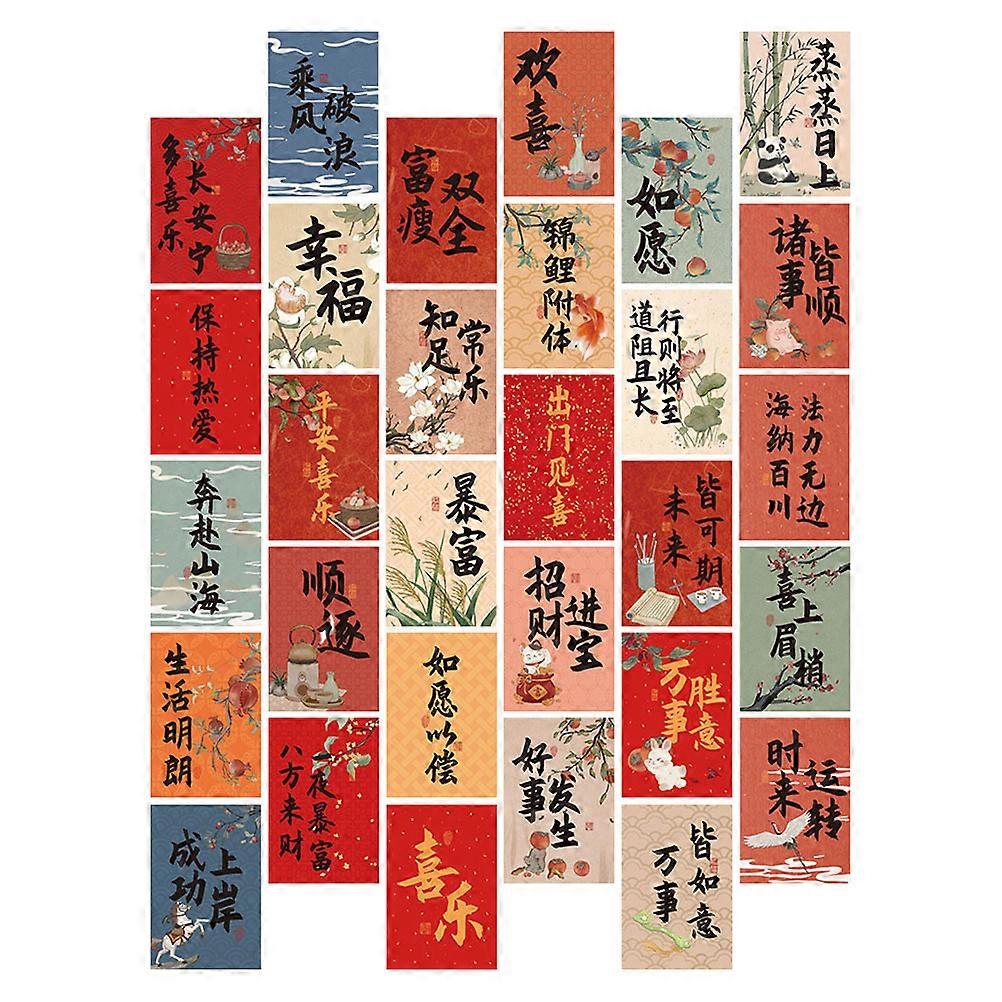 多喜乐
长安宁
保持热爱
奔赴山海
生活明朗
成功
上岸
乘风
破浪
幸福
平安喜乐
顺逐
八方来财
一夜暴富
富瘦
双全
知足
常乐
暴富
如愿以偿
喜乐
欢喜
锦鲤附体
出门见喜
招财
进宝
好事
发生
如愿
道阻且长
行则将至
未来
皆可期
万事
胜意
万事
皆如意
蒸蒸日上
诸事
皆顺
海纳百川
法力无边
喜上
眉梢
时来
运转